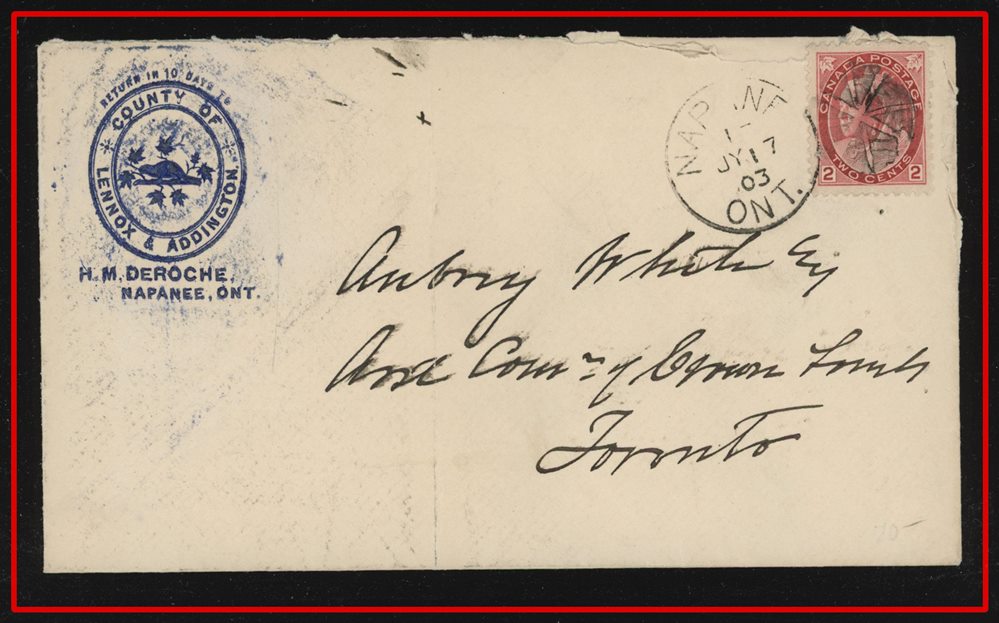 RETURN IN 10 DAYS TO
COUNTY OF
LENNOX & ADDINGTON
H. M. DEROCHE,
NAPANEE, ONT.
NAPANEE
1-
JY 17
03
ONT.
CANADA POSTAGE
2 TWO CENTS 2
Aubrey White Esq
Asst Comr of Crown Lands
Toronto
20-